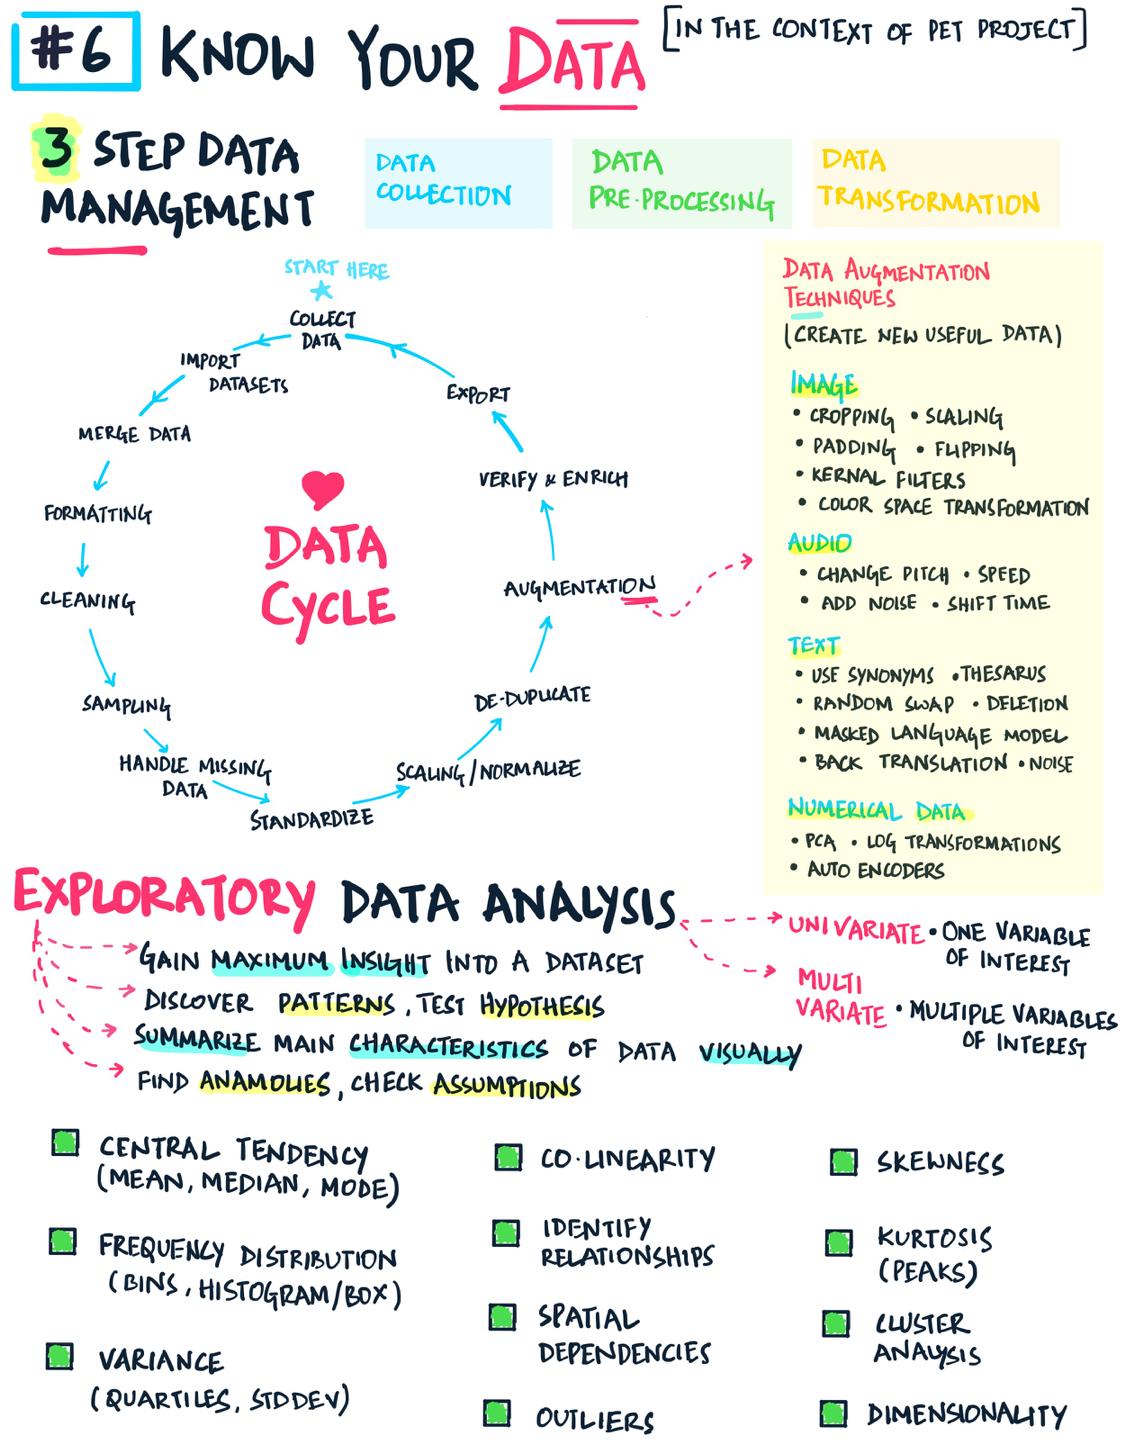 #6 KNOW YOUR DATA [IN THE CONTEXT OF PET PROJECT]
3 STEP DATA
MANAGEMENT
DATA
COLLECTION
DATA
PRE-PROCESSING
DATA
TRANSFORMATION
START HERE
COLLECT
DATA
IMPORT
DATASETS
MERGE DATA
FORMATTING
CLEANING
SAMPLING
HANDLE MISSING
DATA
STANDARDIZE
SCALING/NORMALIZE
DE-DUPLICATE
AUGMENTATION
VERIFY & ENRICH
EXPORT
DATA
CYCLE
DATA AUGMENTATION
TECHNIQUES
(CREATE NEW USEFUL DATA)
IMAGE
• CROPPING • SCALING
• PADDING • FLIPPING
• KERNAL FILTERS
• COLOR SPACE TRANSFORMATION
AUDIO
• CHANGE PITCH • SPEED
• ADD NOISE • SHIFT TIME
TEXT
• USE SYNONYMS • THESARUS
• RANDOM SWAP • DELETION
• MASKED LANGUAGE MODEL
• BACK TRANSLATION • NOISE
NUMERICAL DATA
• PCA • LOG TRANSFORMATIONS
• AUTO ENCODERS
EXPLORATORY DATA ANALYSIS
GAIN MAXIMUM INSIGHT INTO A DATASET
DISCOVER PATTERNS, TEST HYPOTHESIS
SUMMARIZE MAIN CHARACTERISTICS OF DATA VISUALLY
FIND ANAMOLIES, CHECK ASSUMPTIONS
UNIVARIATE • ONE VARIABLE
OF INTEREST
MULTI
VARIATE • MULTIPLE VARIABLES
OF INTEREST
CENTRAL TENDENCY
(MEAN, MEDIAN, MODE)
FREQUENCY DISTRIBUTION
(BINS, HISTOGRAM/BOX)
VARIANCE
(QUARTILES, STDDEV)
CO-LINEARITY
IDENTIFY
RELATIONSHIPS
SPATIAL
DEPENDENCIES
OUTLIERS
SKEWNESS
KURTOSIS
(PEAKS)
CLUSTER
ANALYSIS
DIMENSIONALITY